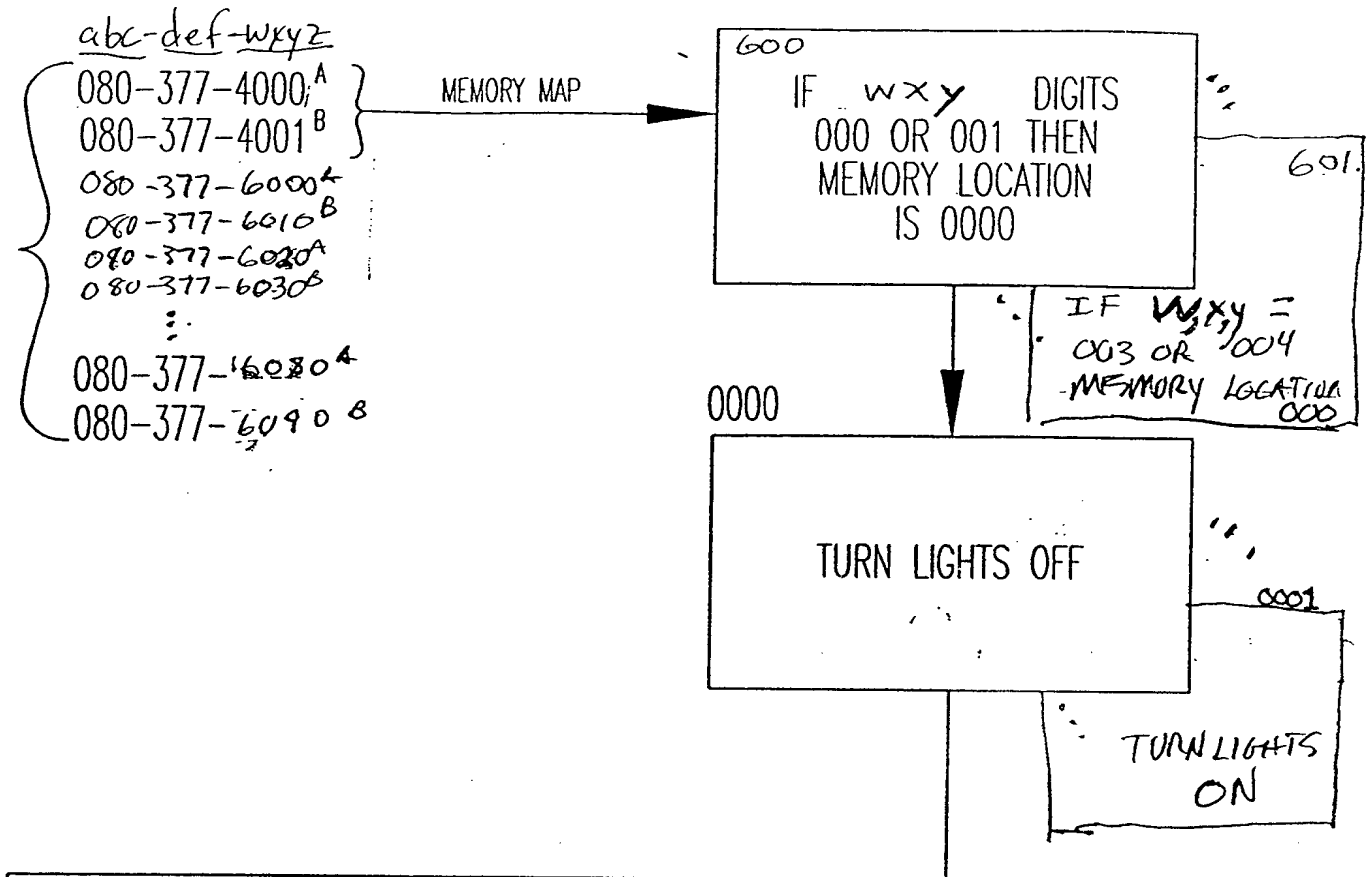 abc-def-wxyz
080-377-4000 A
080-377-4001 B
080-377-6000 A
080-377-6010 B
080-377-6020 A
080-377-6030 B
080-377-6080 A
080-377-6090 B
MEMORY MAP
600
IF wxy DIGITS
000 OR 001 THEN
MEMORY LOCATION
IS 0000
601
IF W,x,y =
003 OR 004
MEMORY LOCATION
000
0000
TURN LIGHTS OFF
0001
TURN LIGHTS
ON